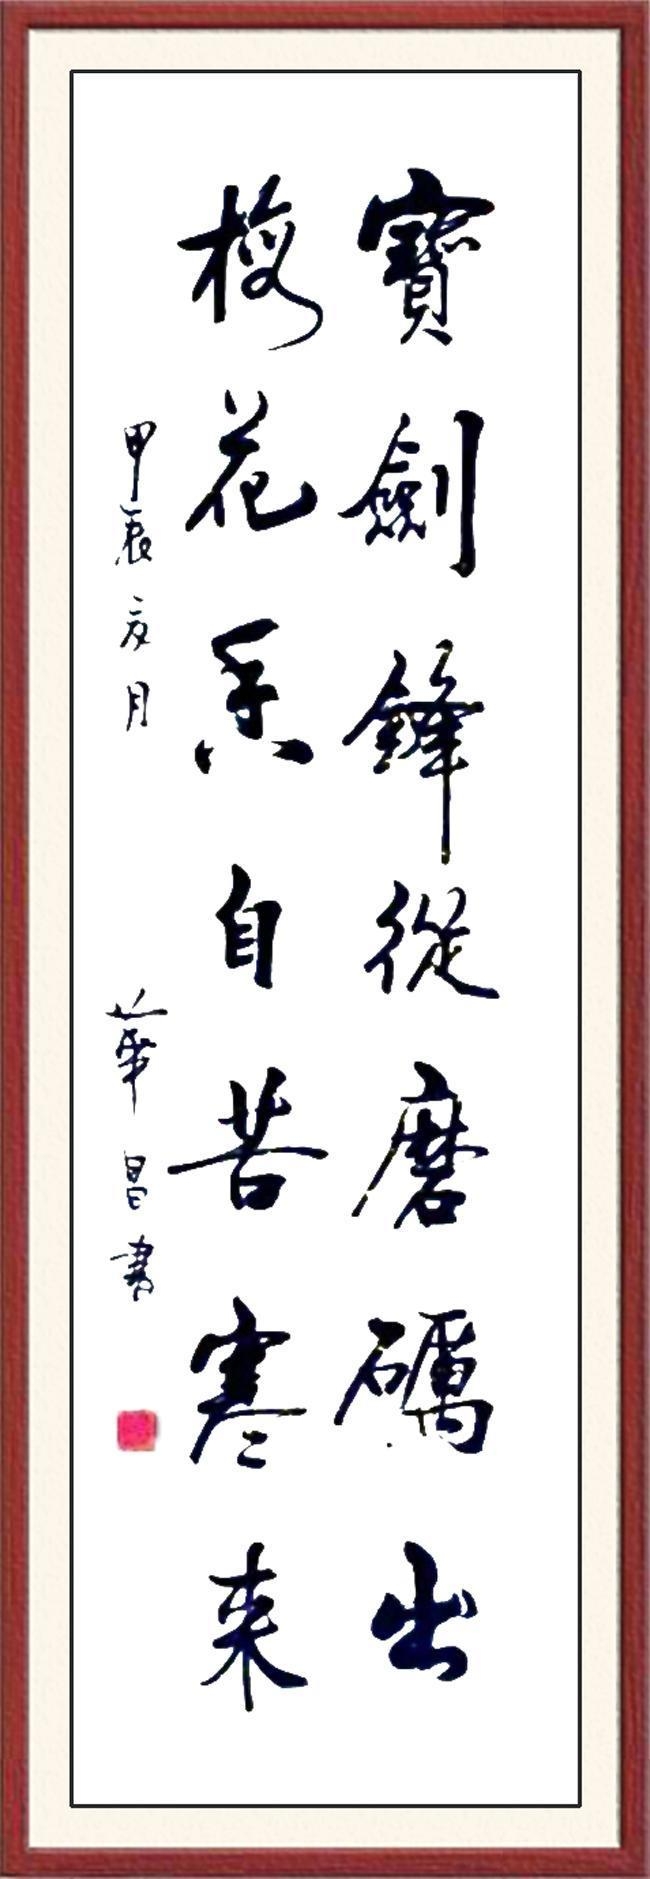 寶劍鋒從磨礪出
梅花香自苦寒来
甲辰亥月 華昌書